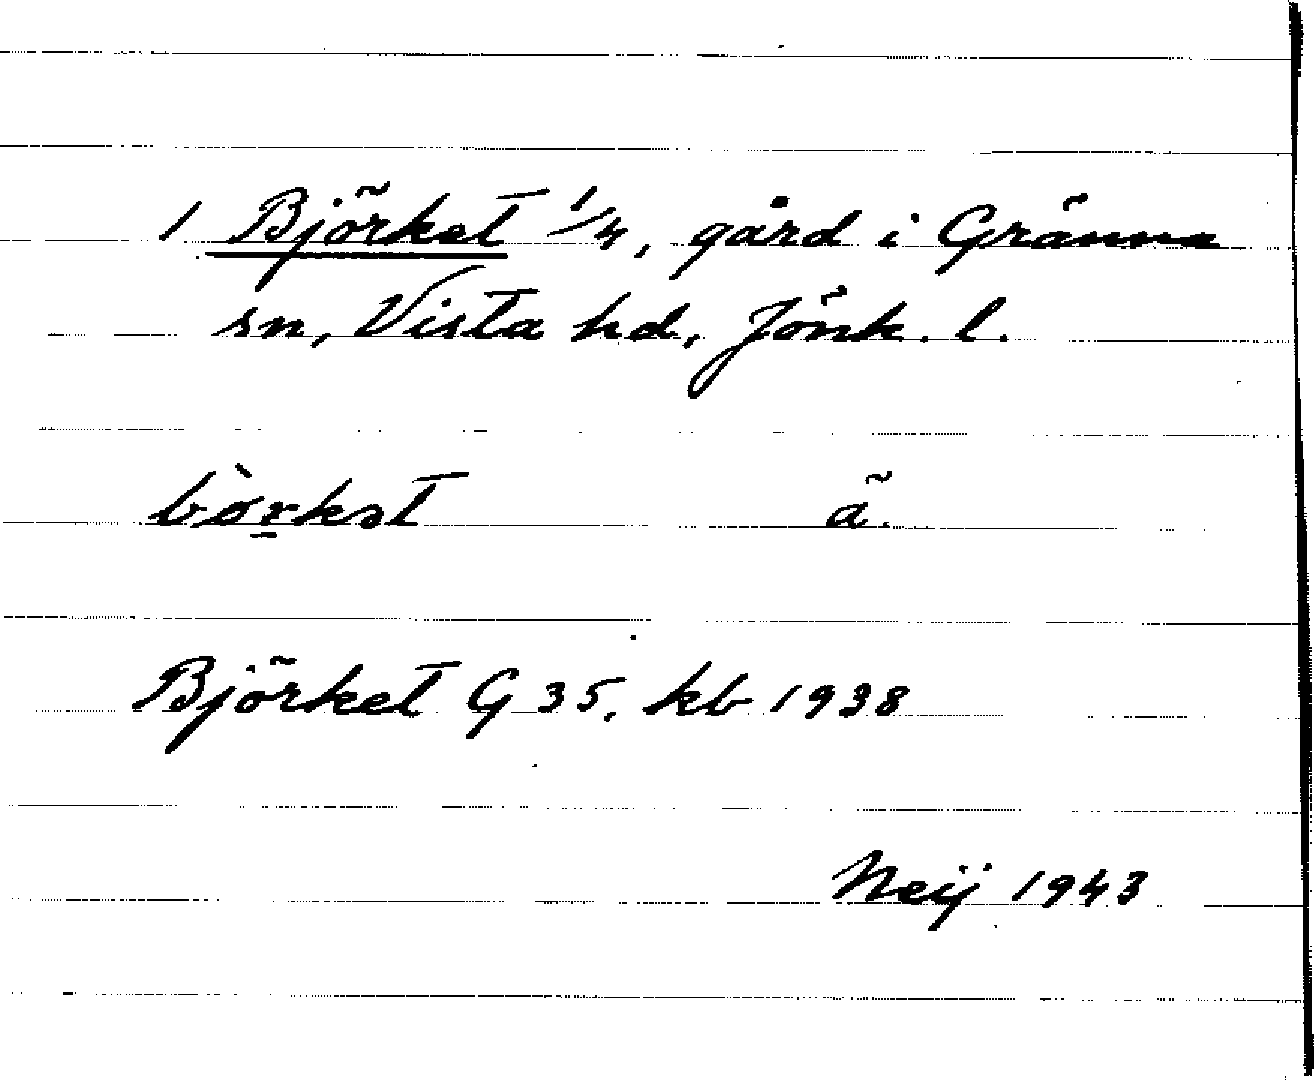 1 Björket 1/4, gård i Gränna
sn, Vista hd, Jönk. l.
bö̀r̠kət ä.
Björket G 35, kb 1938
Neij 1943